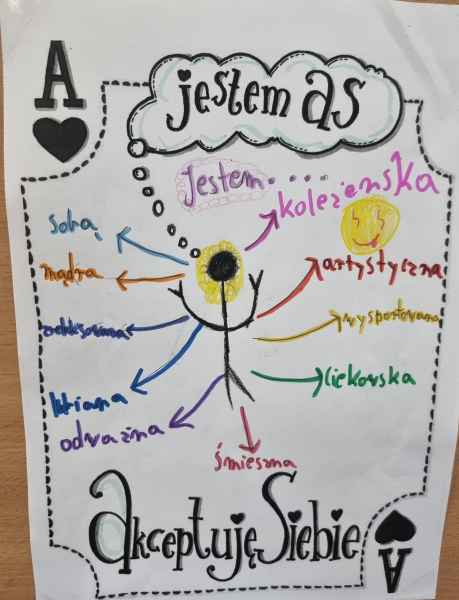 A
jestem as
Jestem....
koleżenska
sobą
mądra
artystyczna
wysportowana
lubiana
ciekavska
odważna
śmieszna
Akceptuję Siebie
A